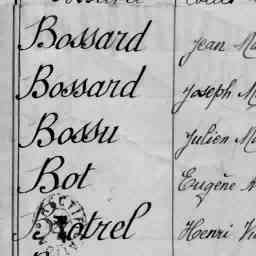 Bossard Jean
Bossard Joseph
Bossu Julien
Bot Eugène
Botrel Henri